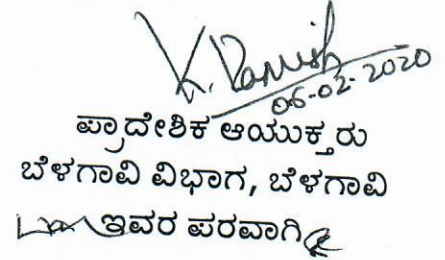 06-02-2020
ಪ್ರಾದೇಶಿಕ ಆಯುಕ್ತರು
ಬೆಳಗಾವಿ ವಿಭಾಗ, ಬೆಳಗಾವಿ
ಇವರ ಪರವಾಗಿ